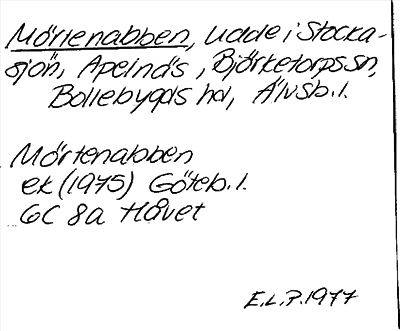 Mörtenabben, udde i Stocka-
sjön, Apelnäs, Björketorps sn,
Bollebygds hd, Älvsb. l.
Mörtenabben
ek (1975) Göteb. l.
6C 8a Håvet
E.L.P. 1977